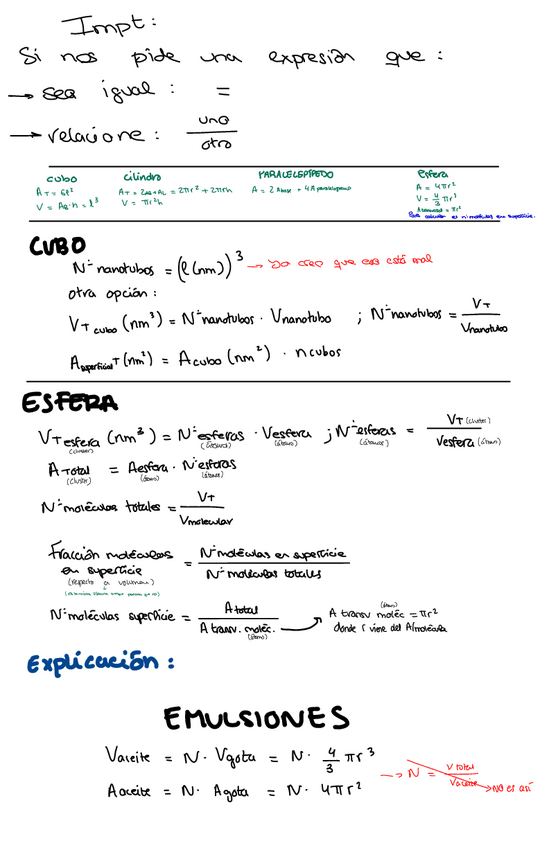 Impt:
Si nos pide una expresión que:
→ sea igual: =
→ relacione: uno/otro
cubo
A_T = 6l²
V = A_B·h = l³
Cilindro
A_T = 2A_B + A_L = 2πr² + 2πrh
V = πr²h
PARALELEPÍPEDO
A = 2 A base + 4 A paralelepípedo
Esfera
A = 4πr²
V = 4/3 πr³
A transversal = πr²
Para calcular el nº moléculas en superficie.
CUBO
Nº nanotubos = (l(nm))³ → Yo creo que esa está mal
otra opción:
V_T cubo (nm³) = Nº nanotubos · V nanotubo ; Nº nanotubos = V_T / V nanotubo
A superficial T (nm²) = A cubo (nm²) · n cubos
ESFERA
V_T esfera (nm³) = Nº esferas · V esfera ; Nº esferas = V_T (cluster) / V esfera (átomo)
(cluster) (átomos) (átomo) (átomos)
A Total = A esfera · Nº esferas
(cluster) (átomo) (átomos)
Nº moléculas totales = V_T / V molecular
Fracción moléculas en superficie = Nº moléculas en superficie / Nº moléculas totales
(respecto a volumen)
Nº moléculas superficie = A total / A transv. moléc. (átomo) → A transv moléc (átomo) = πr²
donde r viene del A/molécula
Explicación:
EMULSIONES
V aceite = N · V gota = N · 4/3 πr³
→ N = V total / V aceite → NO es así
A aceite = N · A gota = N · 4πr²